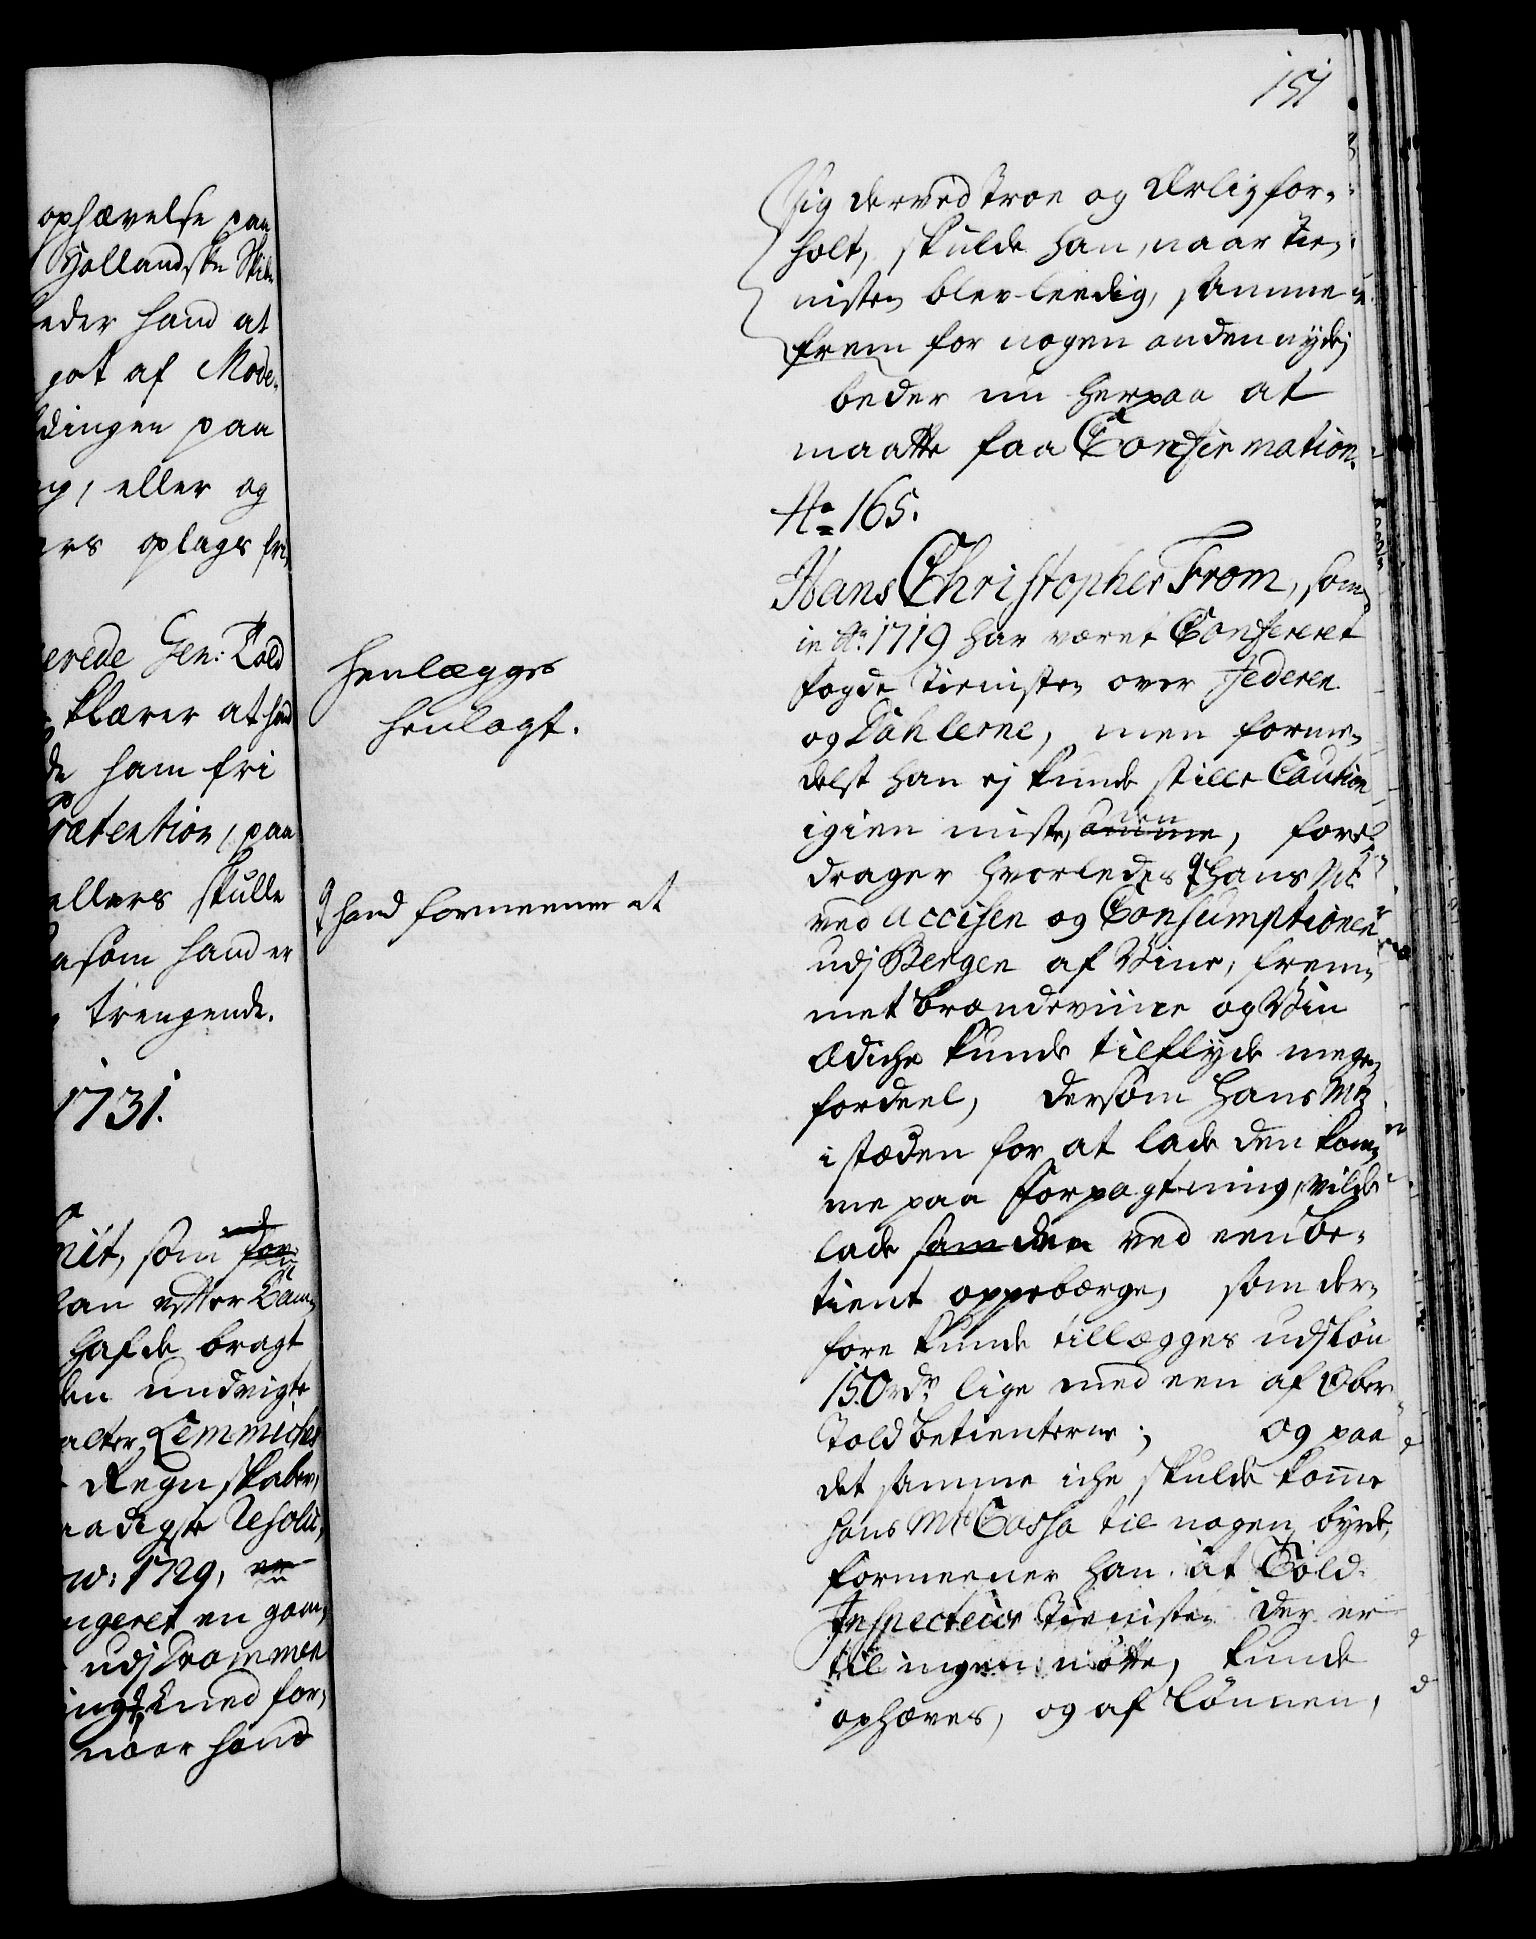 151
ophævelse paa
Hollandske Skibe
beder hand at
got af Mode-
ldingen paa
eller og
ers oplags fri
erede Gen: Told
klærer at hand
de ham fri
rætention, paa
ellers skulle
som hand er
trengende.
1731.
nit, som
han efter
hafde bragt
den undvigte
alter Lemmiches
Regnskaber,
naadigste Resolu-
1729,
ngeret en gam-
udj Drammen
med for-
naar hand
Sig derved troe og Ærlig for-
holt, skulde han, naar tie-
nisten blev leedig, samme
frem for nogen anden nyde;
beder nu herpaa at
maatte faa Confirmation.
No 165.
Hans Christopher From, som
in Ao. 1719 har været Confereret
fogde tienisten over Jederen
og Dahlerne, men forme-
delst han ej kunde stille Caution
igien miste, den samme, fore-
drager hvorledes hans Mt
ved Accisen og Consumptionen
udj Bergen af Viine, frem-
met brændeviine og Viin
Ædiche kunde tilflyde megen
fordeel, dersom Hans Mt
i stæden for at lade den kom-
me paa forpagtning, vilde
lade samden ved een be-
tient oppebærge, som der-
fore kunde tillægges udj Løn
150 rdr lige med een af Ober
Told betienterne; og paa
det samme iche skulde kome
hans Mts Cassa til nogen byrde,
formeener han at Told-
Inspecteur tienisten der er
til ingen nøtte, kunde
ophæves, og af Lønnen,
Henlægges
henlagt.
hand formeener at